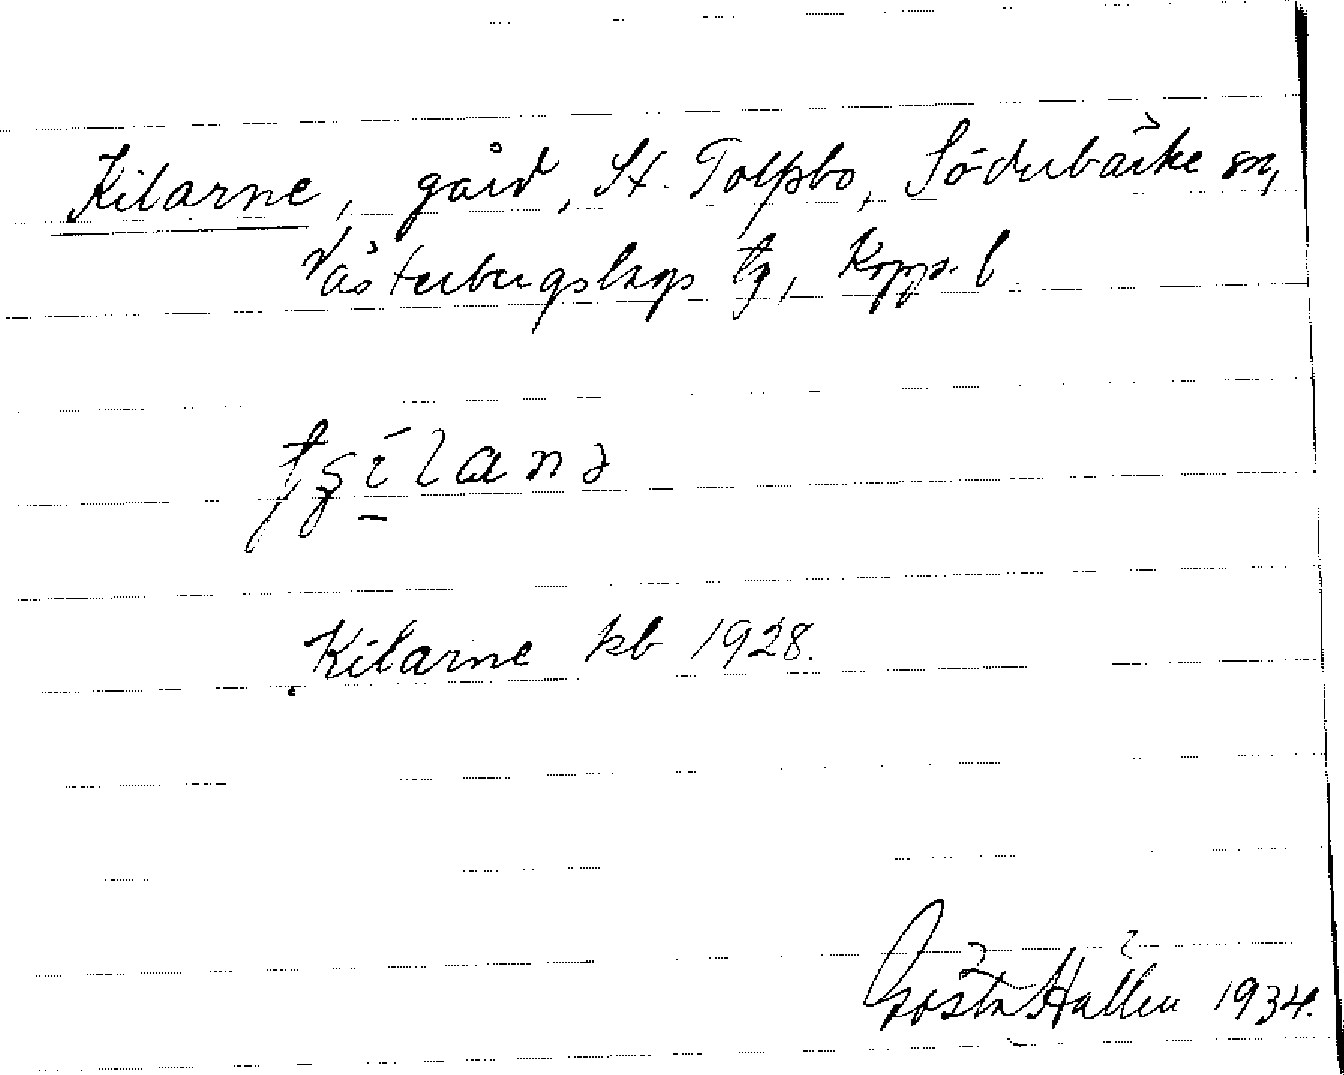 Kilarne, gård, St. Tolpbo, Söderbärke sn,
Västerbergslags tg, Kopp. l
Kilarne kb 1928.
Gösta Hallen 1934.